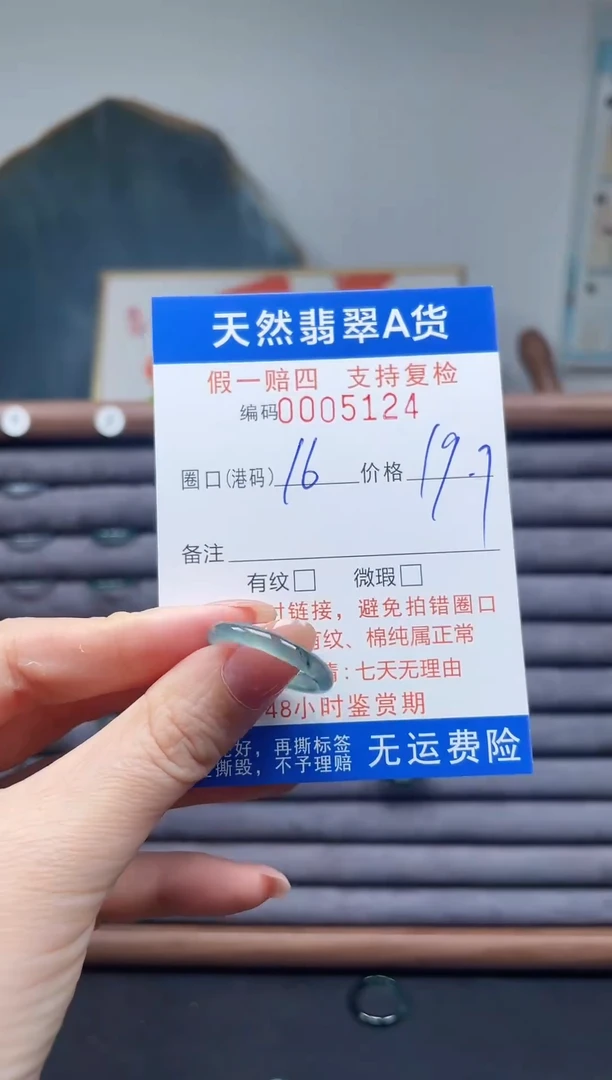 天然翡翠A货
假一赔四 支持复检
编码0005124
圈口(港码) 16 价格 19.7
备注
有纹□ 微瑕□
对链接，避免拍错圈口
有纹、棉纯属正常
：七天无理由
48小时鉴赏期
好，再撕标签
撕毁，不予理赔
无运费险